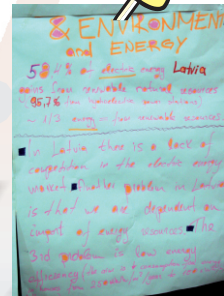 & ENVIRONMENT
and ENERGY
58,4 % of electric energy Latvia
gains from renewable natural resources
95,7% from hydroelectric power stations
~ 1/3 energy = from renewable resources.
In Latvia there is a lack of
competition in the electric energy
market. Another problem in Latvia
is that we are dependent on
import of energy resources. The
3rd problem is low energy